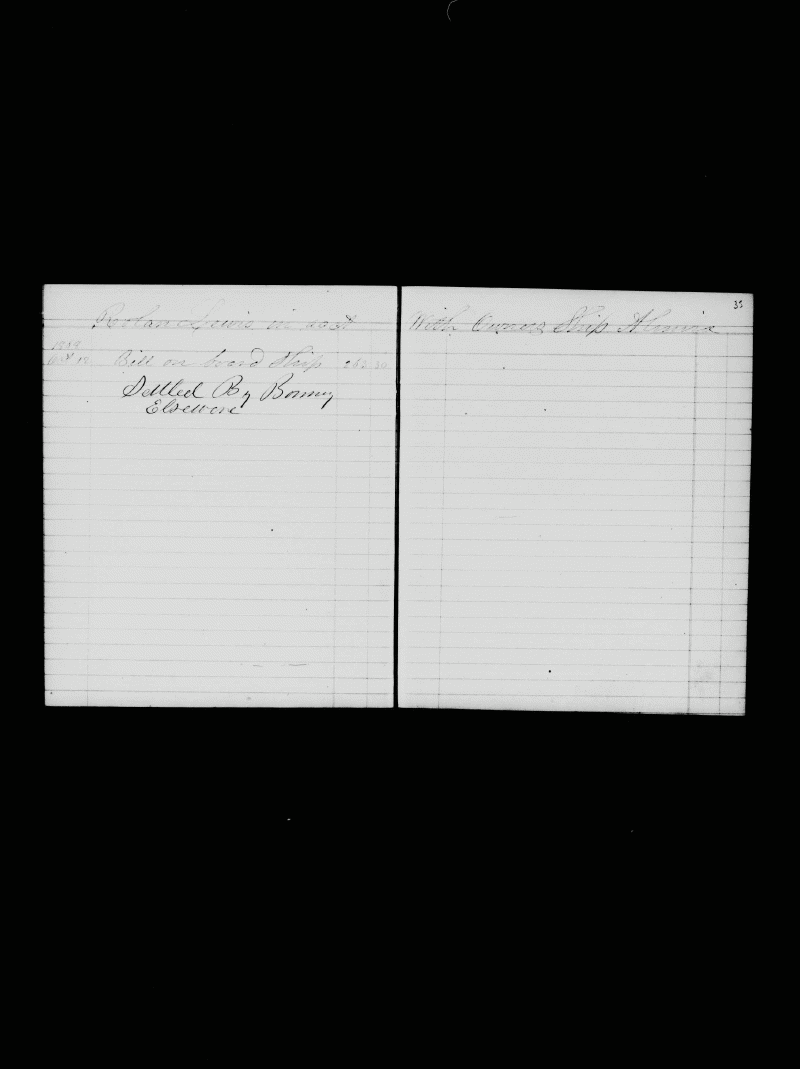 Rolan Lewis in acct
1859
Oct 12 Bill on board Ship 263 30
Settled By Bonny
Elsewere
33
With Owners Ship